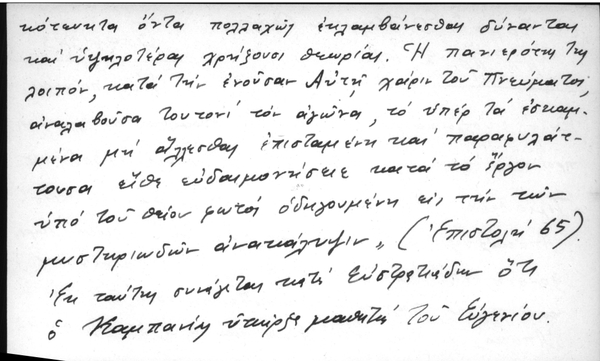 κότευκτα ὄντα πολλαχῶς ἐκλαμβάνεσθαι δύνανται
καὶ ὑψηλοτέρας χρῄζουσι θεωρίας. Ἡ πανιερότης της
λοιπόν, κατὰ τὴν ἐνοῦσαν Αὐτῇ χάριν τοῦ Πνεύματος,
ἀναλαβοῦσα τουτονὶ τὸν ἀγῶνα, τὸ ὑπὲρ τὰ ἐσκαμ-
μένα μὴ ἄλλεσθαι ἐπισταμένη καὶ παραφυλάτ-
τουσα εἴθε εὐδαιμονήσειε κατὰ τὸ ἔργον
ὑπὸ τοῦ θείου φωτὸς ὁδηγουμένη εἰς τὴν τῶν
μυστηριωδῶν ἀνακάλυψιν" (Ἐπιστολὴ 65).
Ἐκ ταύτης συνάγεται κατὰ Εὐστρατιάδην ὅτι
ὁ Καμπανίας ὑπῆρξε μαθητὴς τοῦ Εὐγενίου.